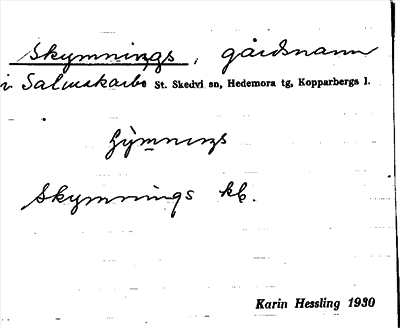 Skymnings, gårdsnamn
i Salmskarbo St. Skedvi sn, Hedemora tg, Kopparbergs l.
Skymnings kb.
Karin Hessling 1930